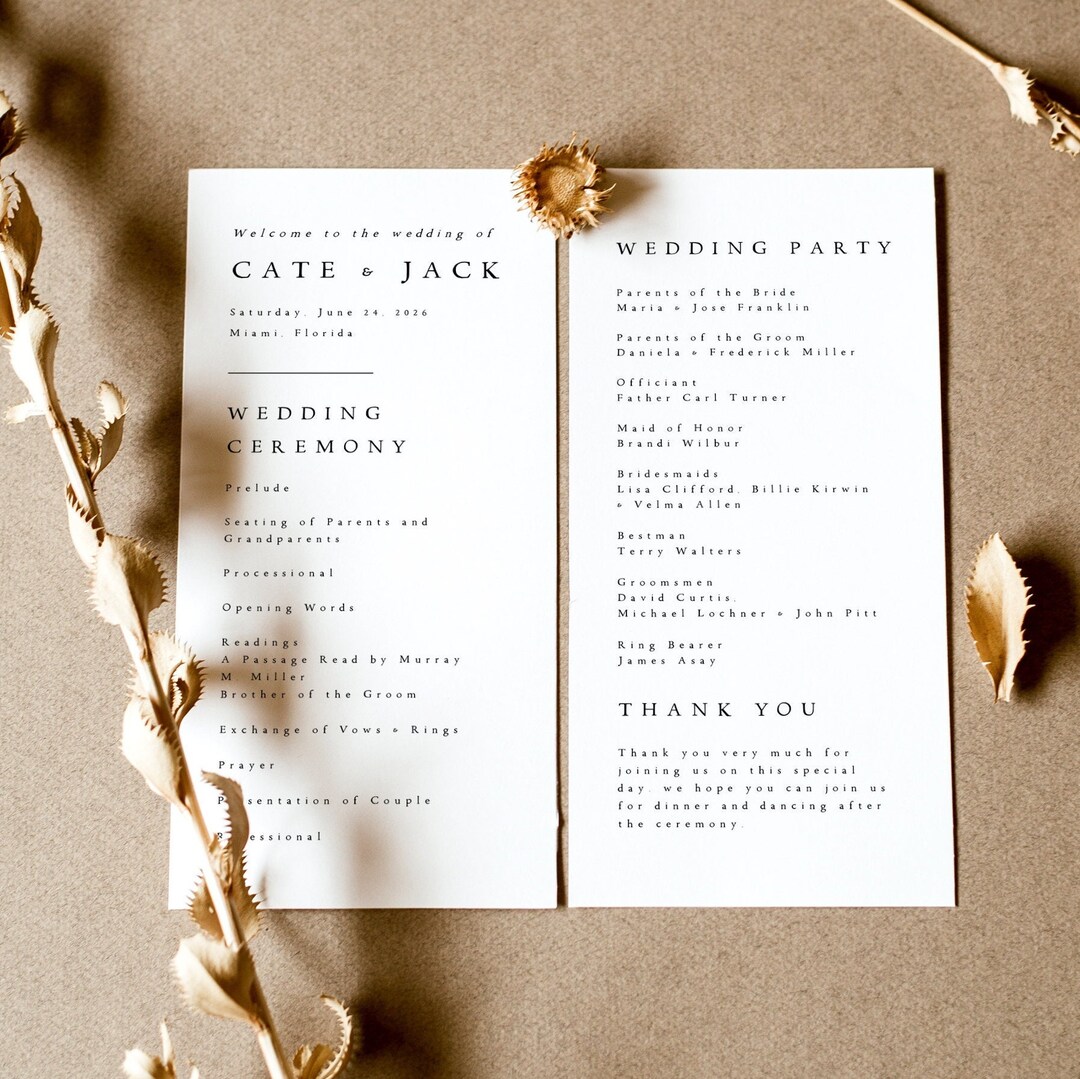 Welcome to the wedding of
CATE & JACK
Saturday, June 24, 2026
Miami, Florida
WEDDING
CEREMONY
Prelude
Seating of Parents and
Grandparents
Processional
Opening Words
Readings
A Passage Read by Murray
M. Miller
Brother of the Groom
Exchange of Vows & Rings
Prayer
Presentation of Couple
WEDDING PARTY
Parents of the Bride
Maria & Jose Franklin
Parents of the Groom
Daniela & Frederick Miller
Officiant
Father Carl Turner
Maid of Honor
Brandi Wilbur
Bridesmaids
Lisa Clifford, Billie Kirwin
& Velma Allen
Bestman
Terry Walters
Groomsmen
David Curtis,
Michael Lochner & John Pitt
Ring Bearer
James Asay
THANK YOU
Thank you very much for
joining us on this special
day. we hope you can join us
for dinner and dancing after
the ceremony.